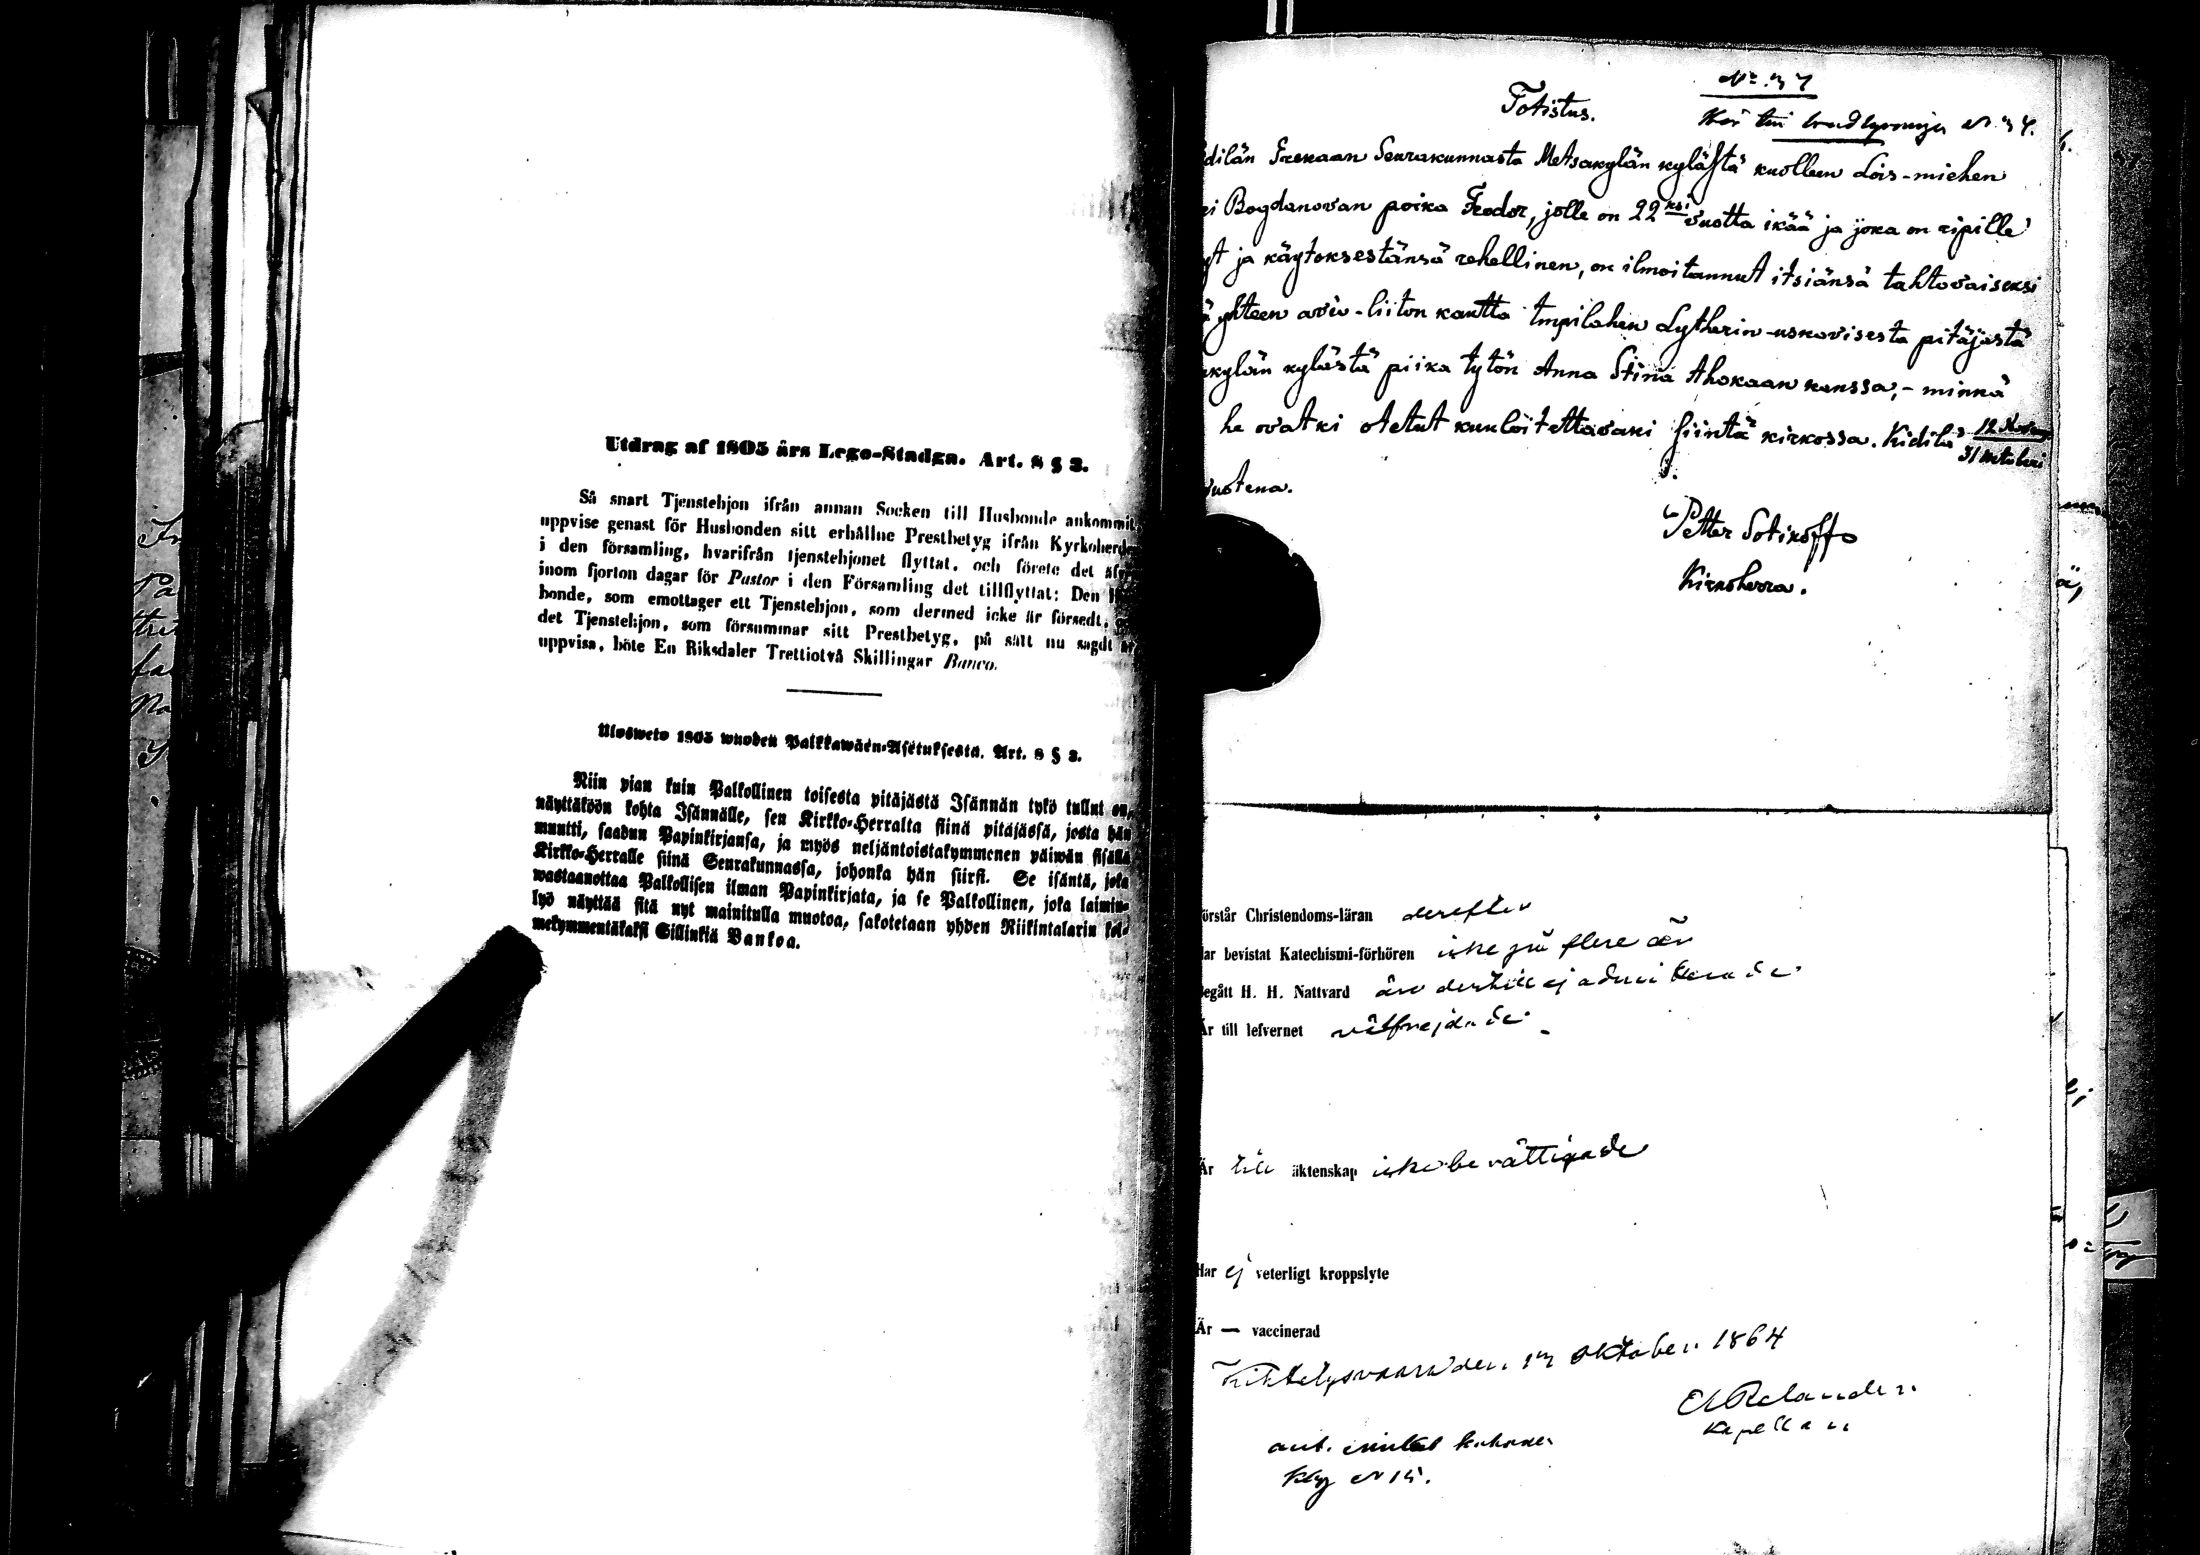 Utdrag af 1805 års Lego-Stadga. Art. 8 § 3.
Så snart Tjenstehjon ifrån annan Socken till Husbonde ankommit,
uppvise genast för Husbonden sitt erhållne Prestbetyg ifrån Kyrkoherden
i den församling, hvarifrån tjenstehjonet flyttat, och förete det
inom fjorton dagar för Pastor i den Församling det tillflyttat: Den
bonde, som emottager ett Tjenstehjon, som dermed icke är försedt,
det Tjenstehjon, som försummar sitt Prestbetyg, på sätt nu sagdt
uppvisa, böte En Riksdaler Trettiotvå Skillingar Banco.
Ulosweto 1805 wuoden Palkkawäen-Asetuksesta. Art. 8 § 3.
Niin pian kuin Palkollinen toisesta pitäjästä Isännän tykö tullut on,
näyttäköön kohta Isännälle, sen Kirkko-Herralta siinä pitäjässä, josta hän
muutti, saadun Papinkirjansa, ja myös neljäntoistakymmenen päiwän sisällä
Kirkko-Herralle siinä Seurakunnassa, johonka hän siirsi. Se isäntä, joka
wastaanottaa Palkollisen ilman Papinkirjata, ja se Palkollinen, joka laimin-
lyö näyttää sitä nyt mainitulla muotoa, sakotetaan yhden Riikintalarin kol-
mekymmentäkaksi Sillinkiä Bankoa.
Totistus.
dilän Frekaan Seurakunnasta Metsakylän kylästä kuolleen Lois-miehen
Bogdanovan poika Feodor, jolle on 22ksi vuotta ikää ja joka on ripille
ja käytoksestänsä rehellinen, on ilmoitannut itsiänsä tahtovaiseksi
yhteen avio-liiton kautta Impilahen Lytherin-uskovisesta pitäjästä
kylän kylästä piika tytön Anna Stina Ahokaan kanssa,- minkä
he ovatki otetut kuuloitettavaki siintä kirkossa. Kidilä
vuotena.
Petter Sotikoff
Kirkoherra.
örstår Christendoms-läran derefter
ar bevistat Katechismi-förhören icke på flere år
egått H. H. Nattvard äro dertill ej admitterade.
Är till lefvernet välfrejdade.
Är till äktenskap icke berättigade
Har ej veterligt kroppslyte
Är — vaccinerad
Kihtelysvaara den oktober 1864
Relander
Kapellan